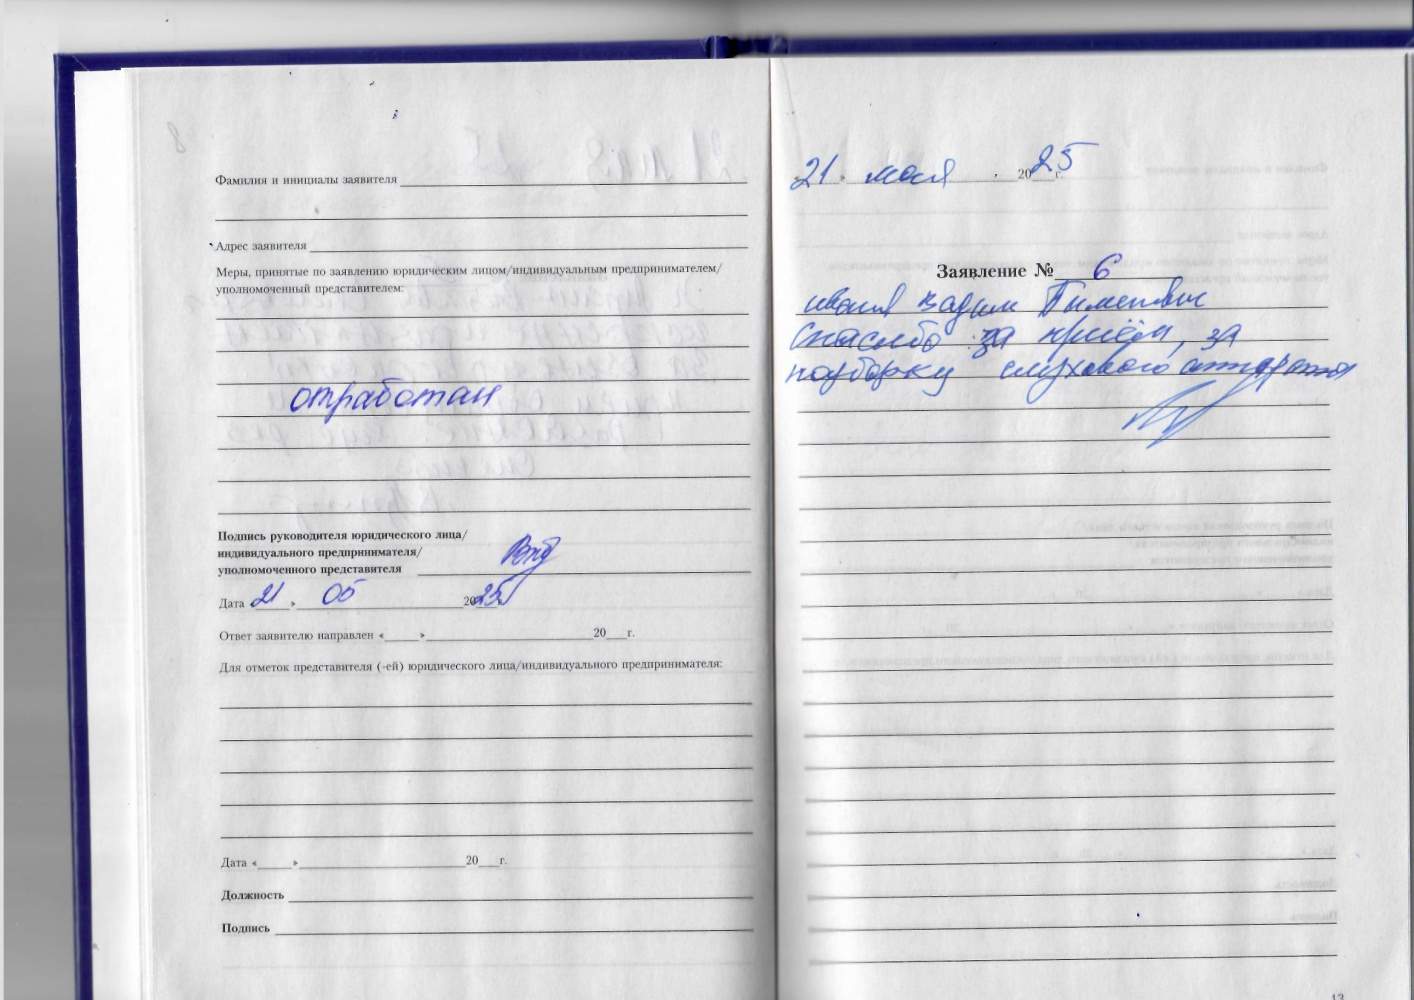 8
Фамилия и инициалы заявителя
Адрес заявителя
Меры, принятые по заявлению юридическим лицом/индивидуальным предпринимателем/
уполномоченный представителем:
отработан
Подпись руководителя юридического лица/
индивидуального предпринимателя/
уполномоченного представителя
Дата 21 » 05 2025
Ответ заявителю направлен « » 20 г.
Для отметок представителя (-ей) юридического лица/индивидуального предпринимателя:
Дата « » 20 г.
Должность
Подпись
21 » мая 2025 г.
Заявление № 6
Вадим
Спасибо за приём, за
подборку слухового аппарата
12